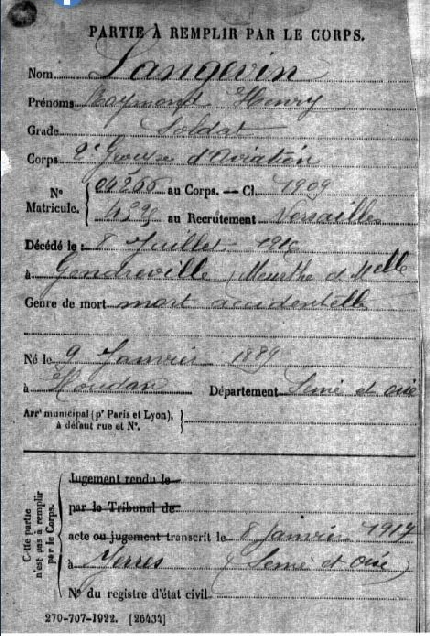 PARTIE À REMPLIR PAR LE CORPS.
Nom Langevin
Prénoms Raymond Henry
Grade Soldat
Corps 2e Groupe d'Aviation
No
Matricule.
au Corps. — Cl. 1909
au Recrutement Versailles
Décédé le 8 Juillet 1916
à Gendreville (Meurthe et Mlle
Genre de mort mort accidentelle
Né le 9 Janvier 1889
à Houdan Département Seine et oise
Arrt municipal (pr Paris et Lyon),
à défaut rue et No.
Cette partie
n'est pas à remplir
par le Corps.
Jugement rendu le
par le Tribunal de
acte ou jugement transcrit le 8 Janvier 1917
à Yerres (Seine et Oise)
No du registre d'état civil
270-707-1922. [26434]